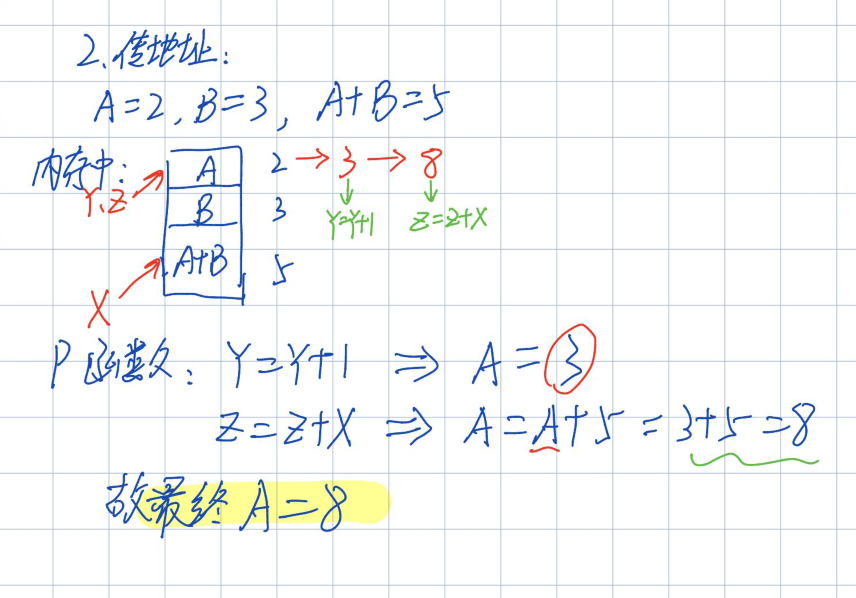 2、传地址：
A=2，B=3，A+B=5
内存中：
A 2 → 3 → 8
Y、Z
B 3 Y=Y+1 Z=Z+X
A+B 5
X
P函数：Y=Y+1 ⇒ A=3
Z=Z+X ⇒ A=A+5=3+5=8
故最终A=8